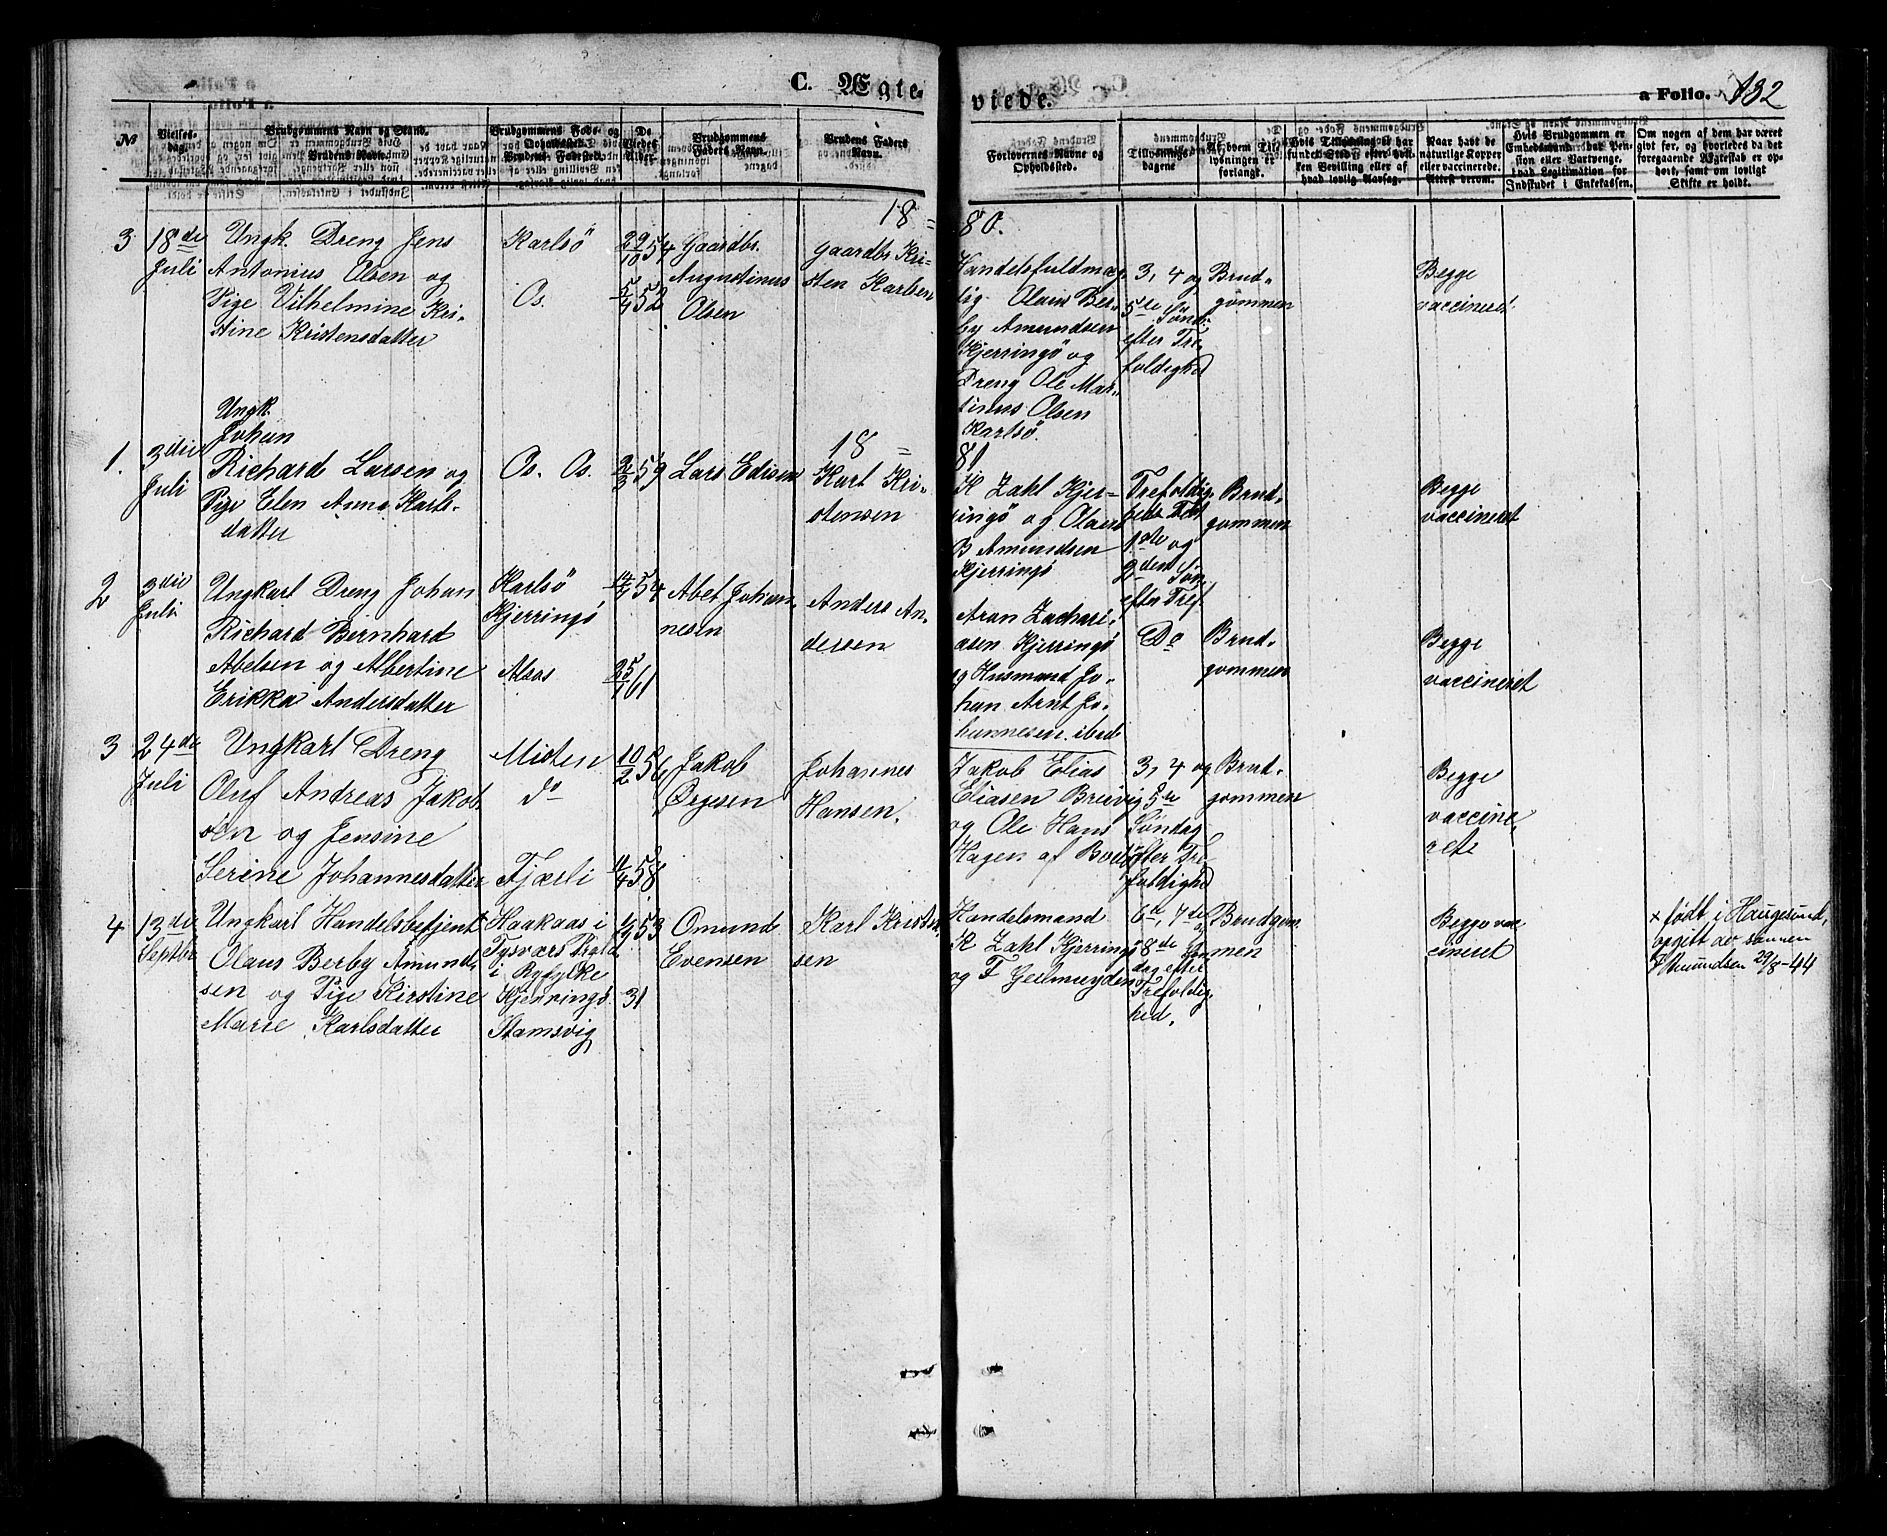 C. Ægte
viede.
a Folio. 132
№
Vielses-
dag.
Brudgommens Navn og Stand.
Brudens Navn.
Brudgommens Føde- og
Opholdssted.
Brudens Fødested.
De
Viedes
Alder.
Brudgommens
Faders Navn.
Brudens Faders
Navn.
Forlovernes Navne og
Opholdssted.
Tillysnings-
dagene
Af hvem Til-
lysningen er
forlangt.
Hvis Tillysning ei har
fundet Sted
Naar havt de
naturlige Kopper
eller vaccinerede.
Attest derom.
Hvis Brudgommen er
Embedsmand
sion eller Vartpenge,
hvad Legitimation for
Indskudet i Enkekassen.
Om nogen af dem har været
gift før, og hvorledes da det
foregaaende Ægteskab er op-
hørt, samt om lovligt
Skifte er holdt.
18=
80.
3
18de
Juli
Ungk. Dreng Jens
Antonius Olsen og
Pige Vilhelmine Kri-
stine Kristensdatter
Karlsö
Os.
29/10 54
5/4 52
Gaardbr.
Augustinus
Olsen
Gaardbr Kri-
sten Karlsen
Handelsfuldmæg-
tig Olaus Ber-
by Amundsen
Kjerringö og
Dreng Ole Mar-
tinus Olsen
Karlsö.
3, 4 og
5te Sönd.
efter Tre-
foldighed
Brud-
gommen
Begge
vaccineret
18=
81
1.
3die
Juli
Ungk.
Johan
Richard Larsen og
Pige Elen Anna Karls-
datter
Os. Os.
59
Lars Edisen
Karl Kri-
stensen
K Zahl Kjer-
ringö og Olaus
B Amundsen
Kjerringö
Trefoldig-
heds Fest
1ste og
2den Sön.
efter Tref.
Brud-
gommen
Begge
vaccineret
2
3die
Juli
Ungkarl Dreng Johan
Richard Bernhard
Abelsen og Albertine
Erikka Andersdatter
Karlsö
Kjerringö
54
25/1 61
Abel Johan-
nesen
Anders An-
dersen
Aron Zachari-
asen Kjerringö
og Husmand Jo-
han Arnt Jo-
hannesen ibid
Do
Brud-
gommen
Begge
vaccineret
3
24de
Juli
Ungkarl Dreng
Oluf Andreas Jakob-
sen og Jensine
Serine Johannesdatter
Misten
do
Fjærli
10/2 56
11/4 58
Jakob
Johannes
Hansen.
Jakob Elias
Eliasen Brevig
og Ole Hans
Hagen af
3, 4 og
5te
Söndag
efter Tre-
foldighed
Brud-
gommen
Begge
vaccine-
rede
4
13de
Septbr
Ungkarl Handelsbetjent
Olaus Berby Amund-
sen og Pige Kirstine
Marie Karlsdatter
Haakaas i
i Ryfylke
Kjerringö
Stamsvig
53
31
Omund
Evensen
Karl Kristen-
sen
Handelsmand
K Zahl Kjerringö
og F Geelmuyden
6te, 7de
8de Sön-
dag efter
Trefoldig-
hed.
Brudgom-
men
Begge vac-
cineret
× født i Haugesund,
opgitt av sønnen
Amundsen 29/8-44